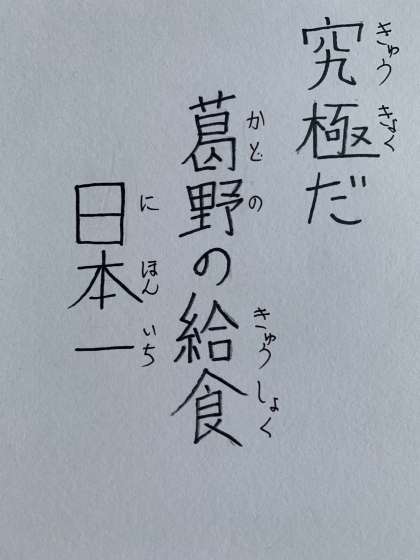 究極だ
きゅうきょく
葛野の給食
かどの
きゅうしょく
日本一
にほんいち